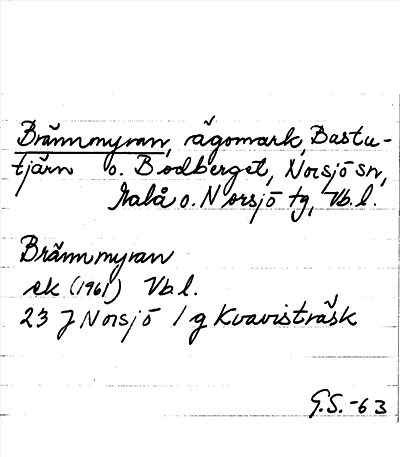 Brännmyran, ägomark, Bastu-
tjärn o. Bodberget, Norsjö sn,
Malå o. Norsjö tg, Vb.l.
Brännmyran
ek (1961) Vb.l.
23 J Norsjö 1 g Kvavisträsk
G.S. -63